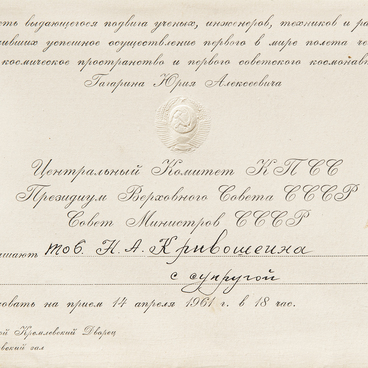 есть выдающегося подвига ученых, инженеров, техников и ра
ивших успешное осуществление первого в мире полета че
космическое пространство и первого советского космонавт
Гагарина Юрия Алексеевича
Центральный Комитет КПСС
Президиум Верховного Совета СССР
Совет Министров СССР
шают тов. Н. А. Кривошеина
с супругой
овать на прием 14 апреля 1961 г. в 18 час.
ой Кремлевский Дворец
вский зал